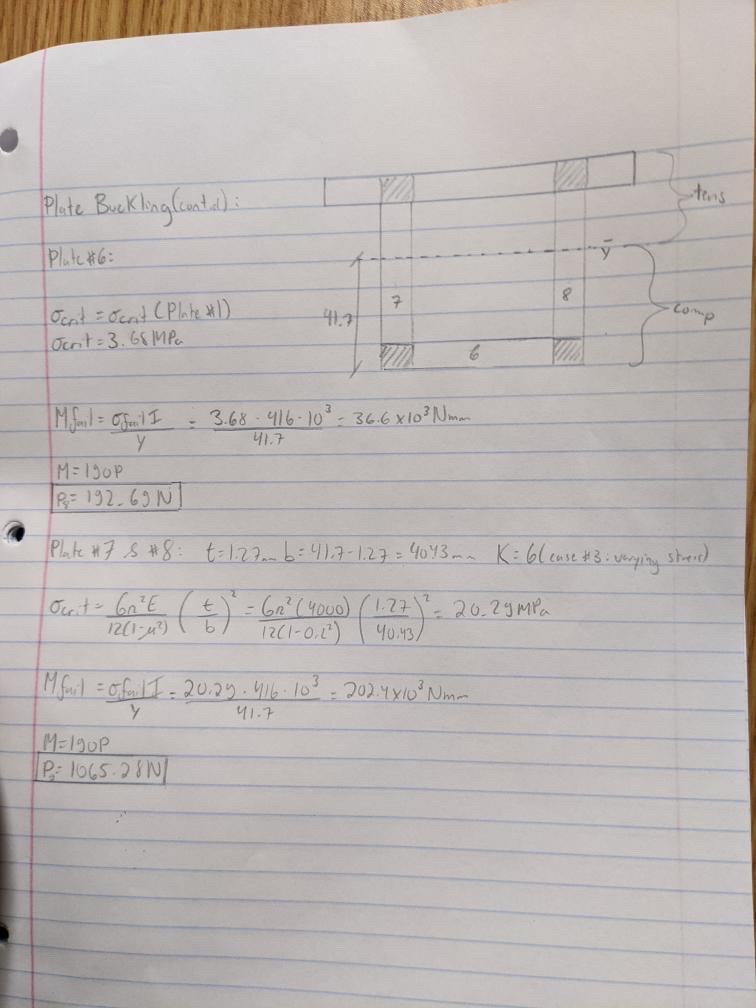 Plate Buckling (cont.d) :
tens
Plate #6:
ȳ
σcrit = σcrit (Plate #1)
7
8
41.7
comp
σcrit = 3.68 MPa
6
Mfail = σfail I / y = 3.68 · 416 · 10³ / 41.7 = 36.6 x10³ Nmm
M = 190P
= 192.69 N
Plate #7 & #8: t = 1.27mm b = 41.7 - 1.27 = 4043 mm K = 6 (case #3: varying stress)
σcrit = 6π²E / 12(1-μ²) (t / b)² = 6π²(4000) / 12(1-0.2²) (1.27 / 40.43)² = 20.29 MPa
Mfail = σfail I / y = 20.29 · 416 · 10³ / 41.7 = 202.4 x10³ Nmm
M = 190P
= 1065.28 N